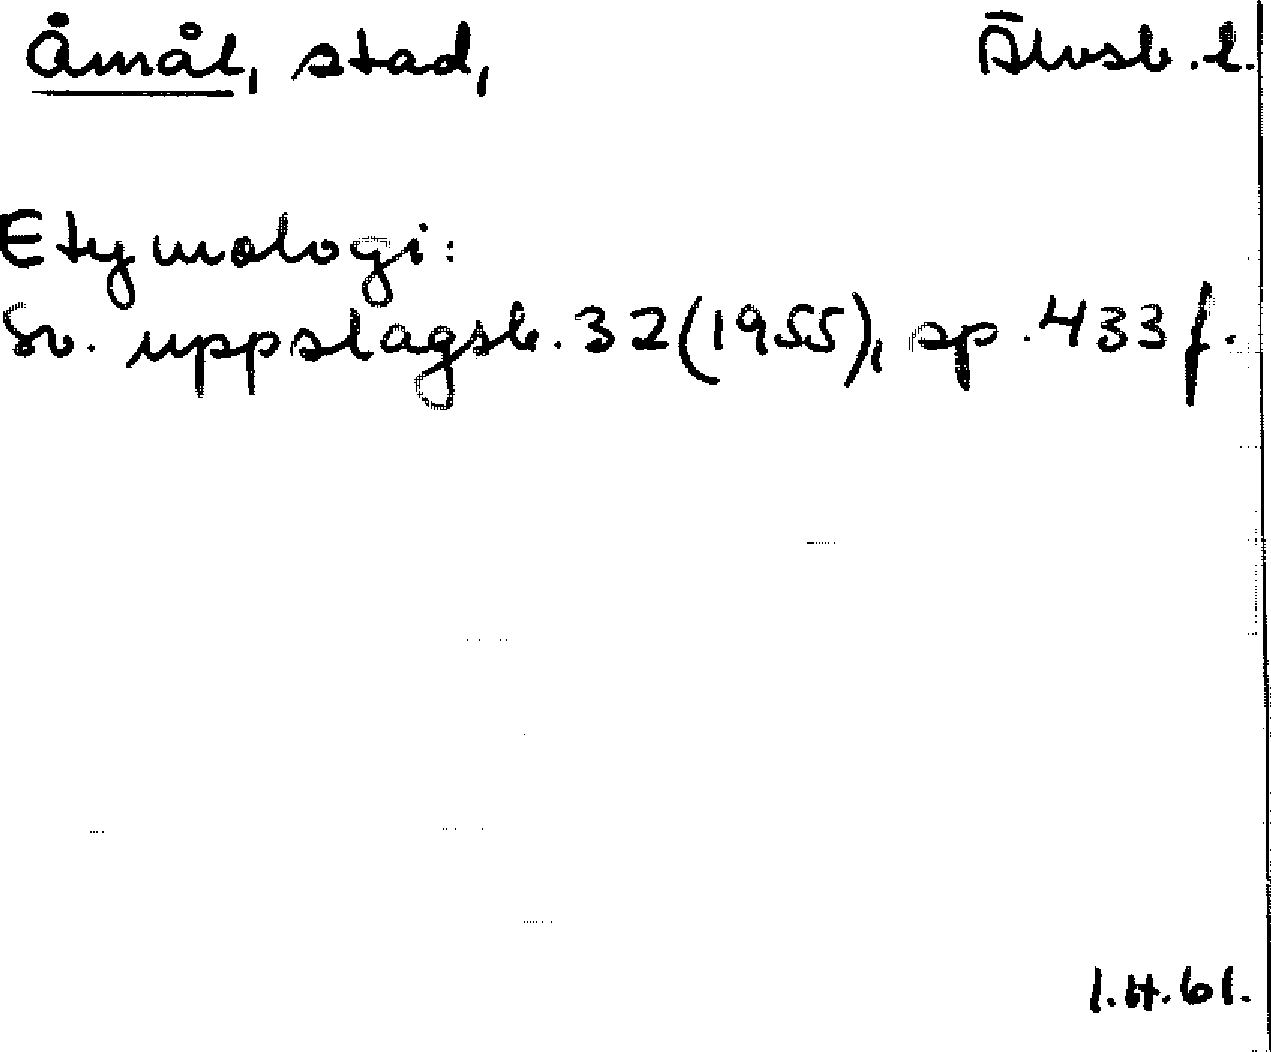 Åmål, stad, Älvsb. l.
Etymologi:
Sv. uppslagsb. 32 (1955), sp. 433 f.
I.H. 61.